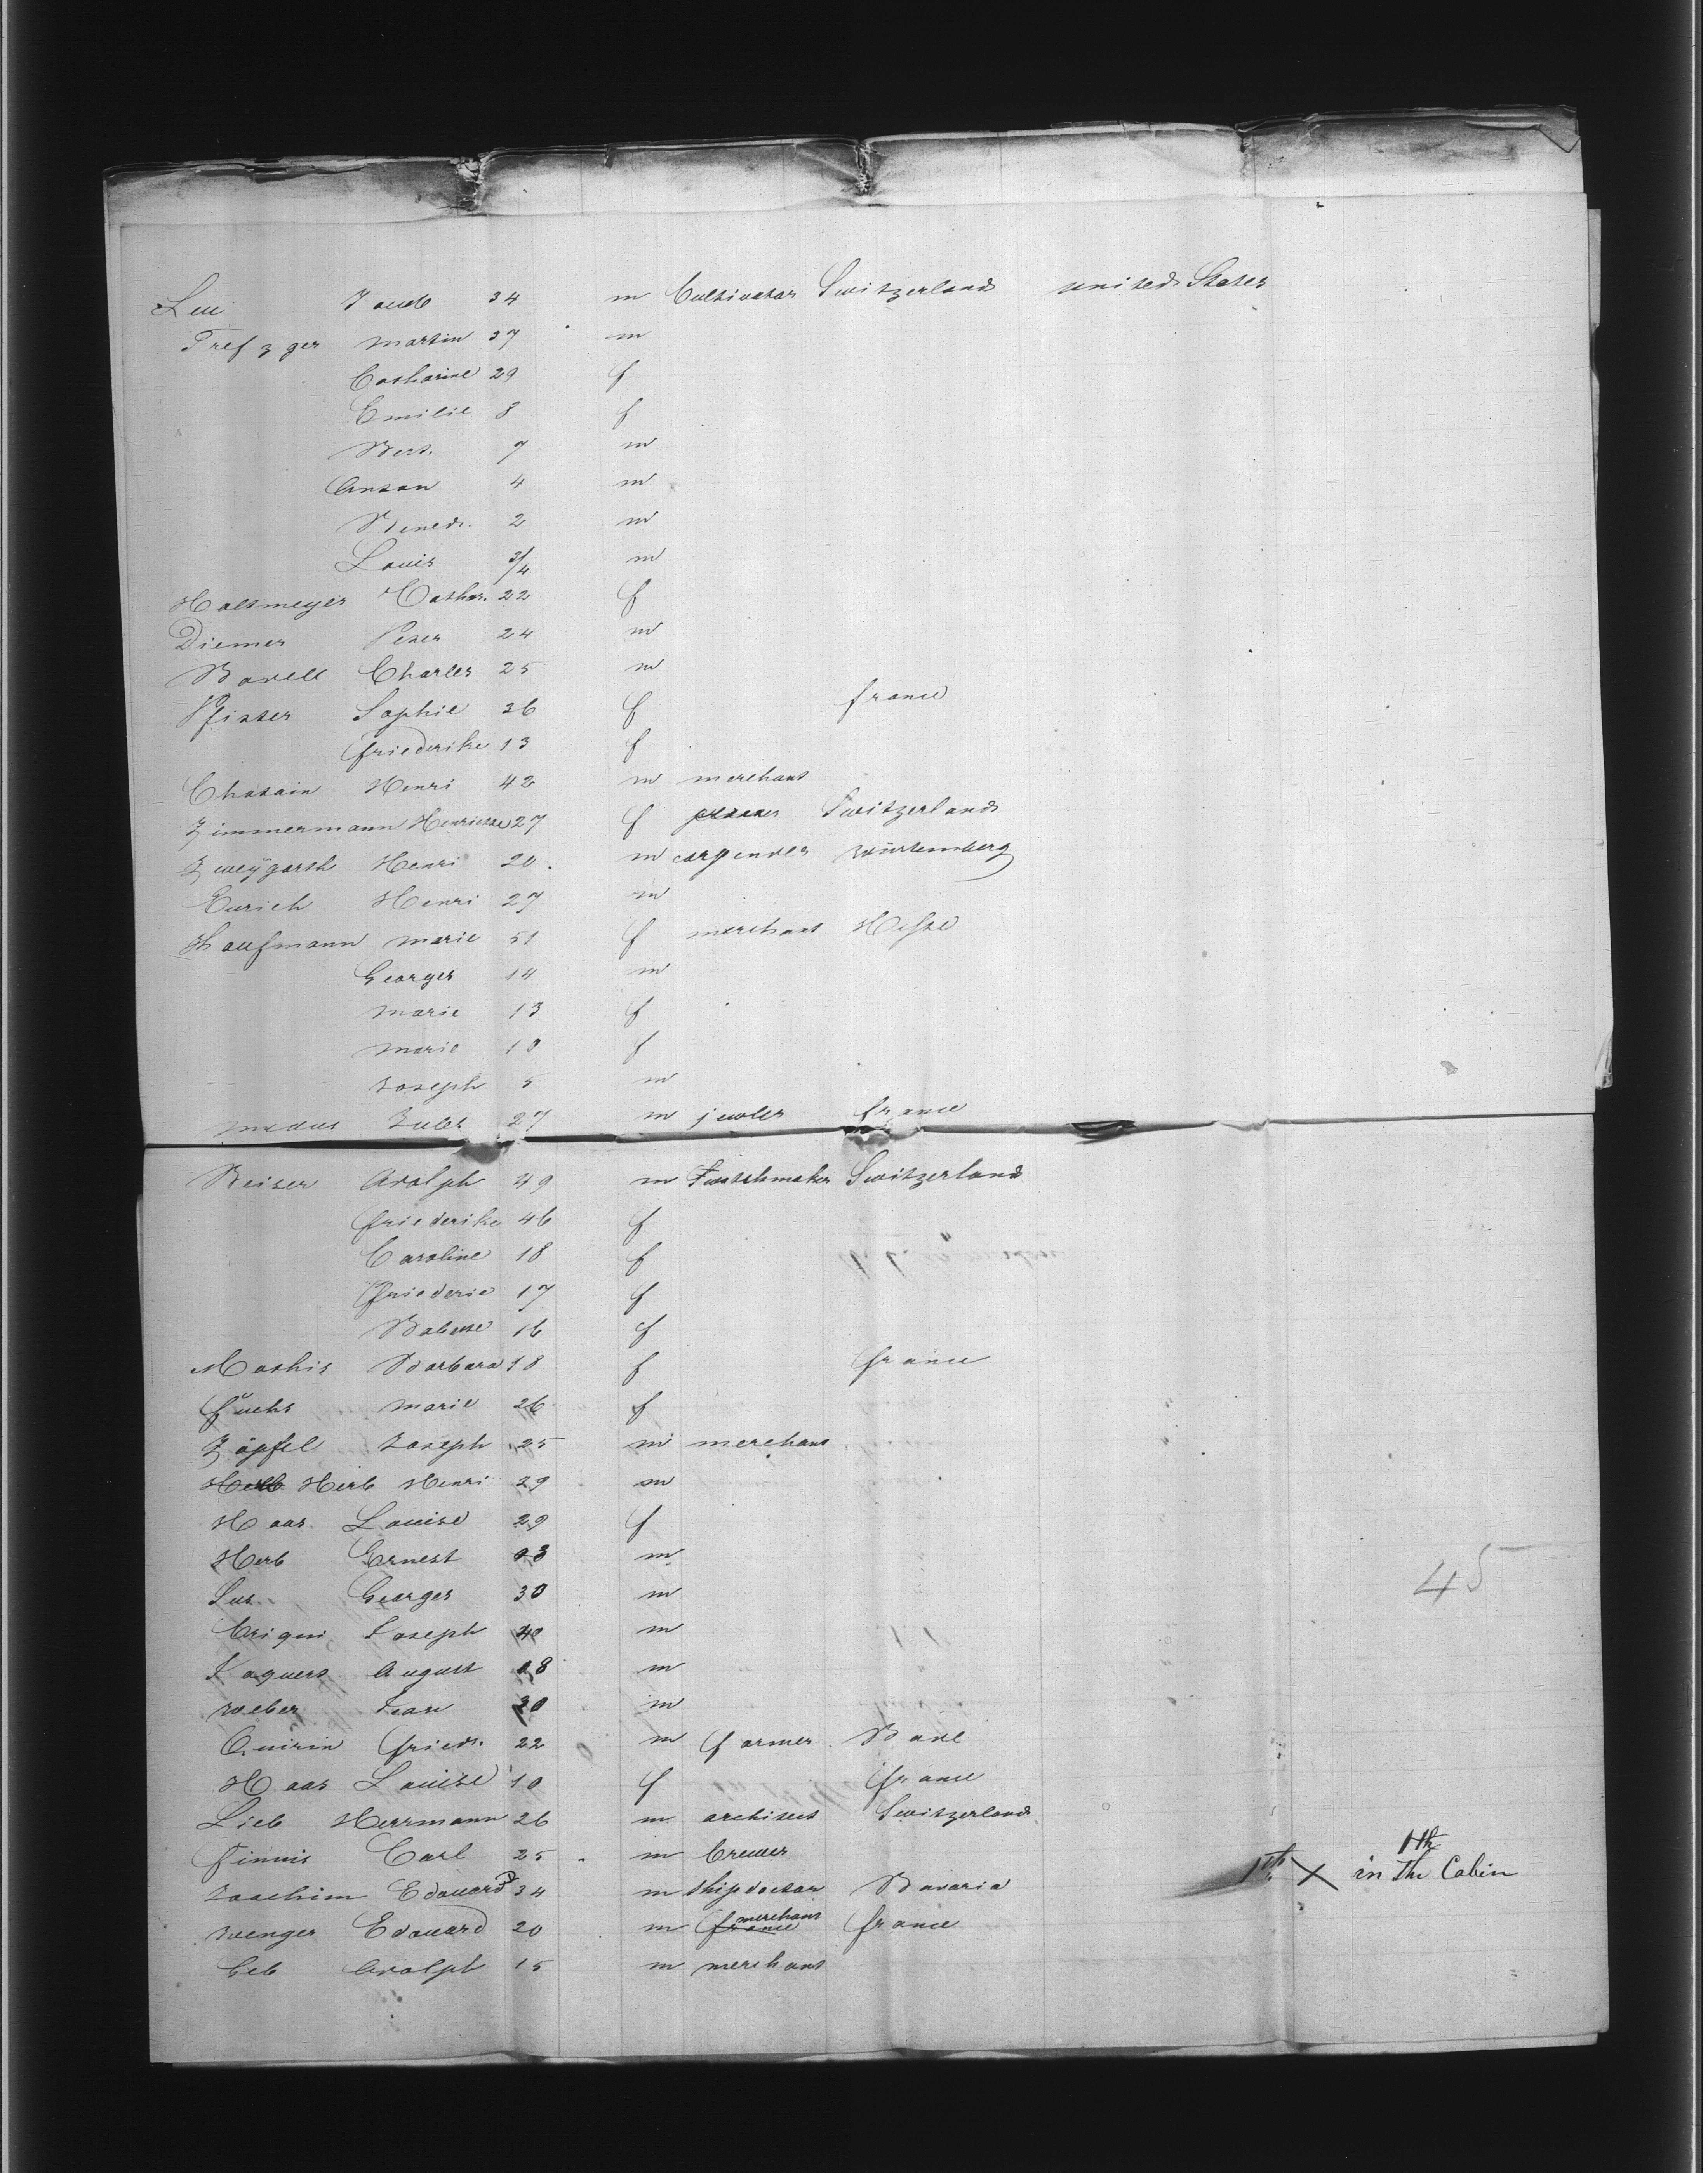 Leu Jacob 34 m Cultivator Switzerland united States
Trefzger martin 37 m
Catharine 29 f
Emilie 8 f
Bert. 7 m
Anton 4 m
Bened. 2 m
Louis 3/4 m
Cathar. 22 f
Diemer Peter 24 m
Charles 25 m
Pfister Sophie 36 f france
friederike 13 f
Chatain Henri 42 m merchant
Zimmermann Henriette 27 f Switzerland
Zweÿgarth Henri 20 m carpenter Würtemberg
Eurich Henri 27 m
Kaufmann marie 51 f merchant Hesse
Georges 14 m
marie 13 f
marie 10 f
Joseph 5 m
Jules 27 m jewler france
Beiser Adolph 49 m watchmaker Switzerland
friederike 46 f
Caroline 18 f
friederie 17 f
Babette 16 f
Mathis Barbara 18 f france
fuchs marie 26 f
Zöpfel Joseph 25 m merchant
Herb Henri 29 m
Haas Louise 29 f
Herb Ernest m
Georges 30 m
Criqui Joseph 40 m
August m
weber Jean 30 m
Quirin friedr. 22 m farmer Bade
Haas Louise 10 f france
Lieb Herrmann 26 m architect Switzerland
Carl 25 m brewer
Joachim Edouard 34 m shipdoctor Bavaria 1th X 1th in the Cabin
wenger Edouard 20 m france merchant france
Geb Adolph 15 m merchant
45